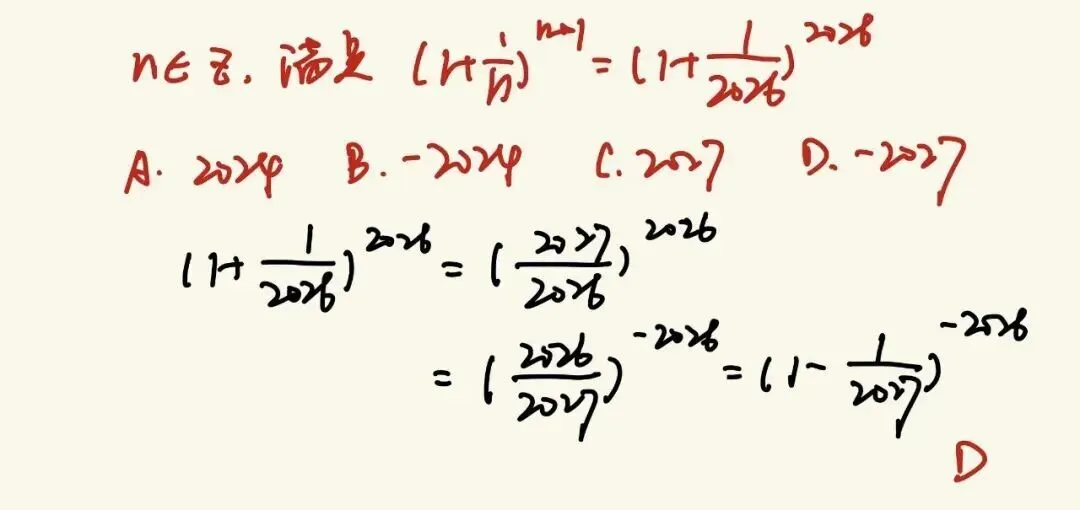 n∈Z, 满足 (1+1/n)^{n+1} = (1+1/2026)^{2026}
A. 2024 B. -2024 C. 2027 D. -2027
(1+1/2026)^{2026} = (2027/2026)^{2026}
= (2026/2027)^{-2026} = (1-1/2027)^{-2026}
D